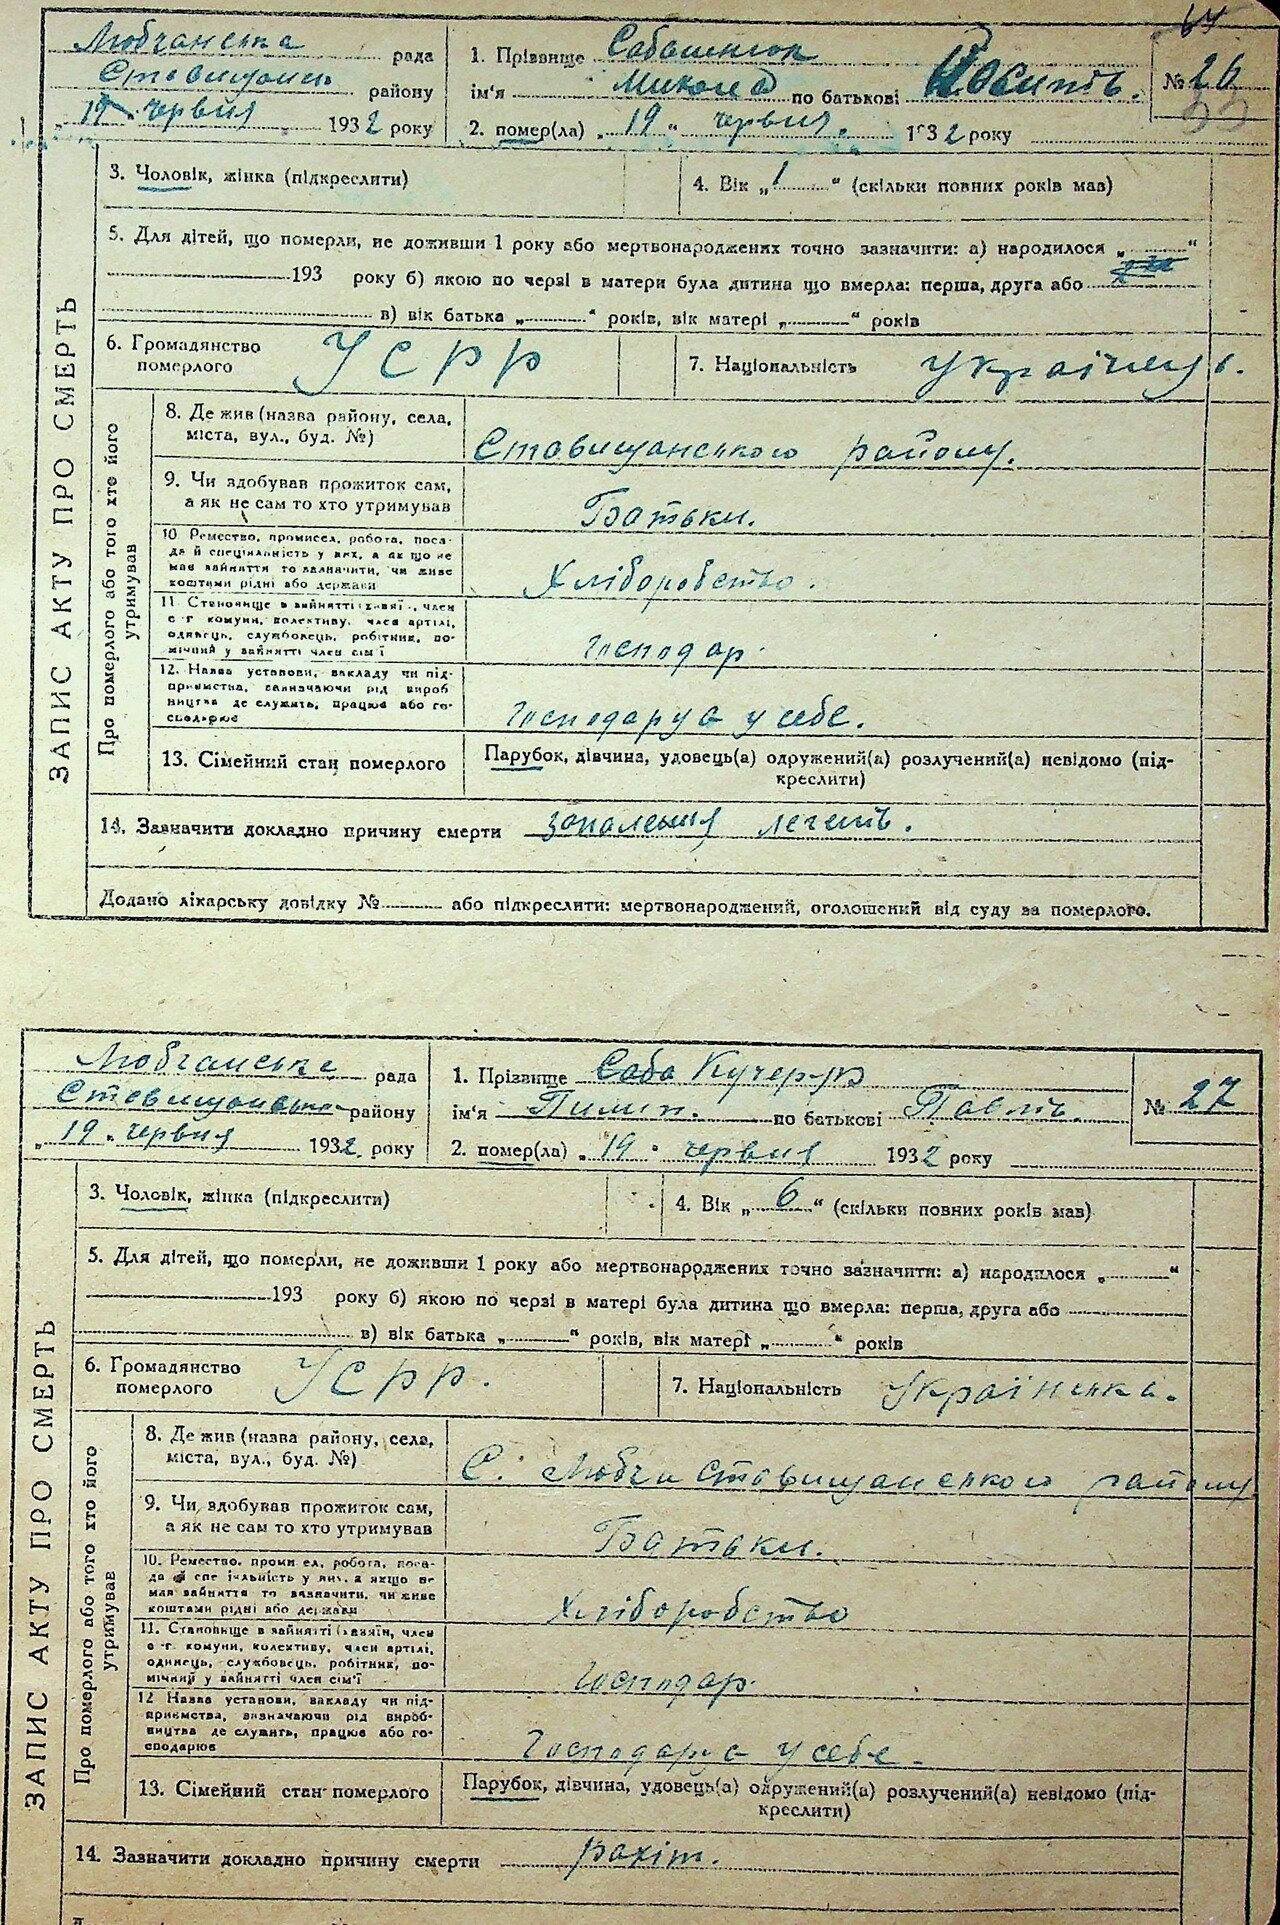 Любчанська рада
Ставищанськ району
„19 червня 1932 року
1. Прізвище Сабашенюк
ім'я Микола по батькові Йосипів.
2. помер(ла) „19" червня. 1932 року
№ 26
3. Чоловік, жінка (підкреслити)
4. Вік „1" (скільки повних років мав)
5. Для дітей, що померли, не доживши 1 року або мертвонароджених точно зазначити: а) народилося „ "
193 року б) якою по черзі в матери була дитина що вмерла: перша, друга або
в) вік батька „ " років, вік матері „ " років
6. Громадянство
померлого
УСРР
7. Національність Українець.
ЗАПИС АКТУ ПРО СМЕРТЬ
Про померлого або того хто його
утримував
8. Де жив (назва району, села,
міста, вул., буд. №)
Ставищанського району.
9. Чи здобував прожиток сам,
а як не сам то хто утримував
Батьки.
10. Ремество, промисел, робота, поса-
да й спеціяльність у них, а як що не
мав зайняття то зазначити, чи живе
коштами рідні або держави
Хліборобство.
11. Становище в зайнятті (хазяї, член
с-г комуни, колективу, член артілі,
одинець, службовець, робітник, по-
мічний у зайнятті член сім'ї
Господар.
12. Назва установи, закладу чи під-
приємства, зазначаючи рід вироб
ництва де служить, працює або го-
сподарює
Господарує у себе.
13. Сімейний стан померлого
Парубок, дівчина, удовець(а) одружений(а) розлучений(а) невідомо (під-
креслити)
14. Зазначити докладно причину смерти запалення легенів.
Додано лікарську довідку № або підкреслити: мертвонароджений, оголошений від суду за померлого.
Любчанська рада
Ставищанське району
„19" червня 1932 року
1. Прізвище Саба Кучерук
ім'я Пилип. по батькові Павлів.
2. помер(ла) „19" червня 1932 року
№ 27
3. Чоловік, жінка (підкреслити)
4. Вік „6" (скільки повних років мав)
5. Для дітей, що померли, не доживши 1 року або мертвонароджених точно зазначити: а) народилося „ "
193 року б) якою по черзі в матері була дитина що вмерла: перша, друга або
в) вік батька „ " років, вік матері „ " років
6. Громадянство
померлого
УСРР.
7. Національність Українська.
ЗАПИС АКТУ ПРО СМЕРТЬ
Про померлого або того хто його
утримував
8. Де жив (назва району, села,
міста, вул., буд. №)
С. Любчи Ставищанського району
9. Чи здобував прожиток сам,
а як не сам то хто утримував
Батьки.
10. Ремество, промисел, робота, поса-
да й спеціяльність у них, а якщо не
мав зайняття то зазначити, чи живе
коштами рідні або держави
Хліборобство
11. Становище в зайнятті (хазяїн, член
с-г. комуни, колективу, член артілі,
одинець, службовець, робітник, по-
мічний у зайнятті член сім'ї
Господар.
12 Назва установи, закладу чи під-
приємства, зазначаючи рід вироб-
ництва де служить, працює або го-
сподарює
Господарує у себе.
13. Сімейний стан померлого
Парубок, дівчина, удовець(а) одружений(а) розлучений(а) невідомо (під-
креслити)
14. Зазначити докладно причину смерти рахіт.